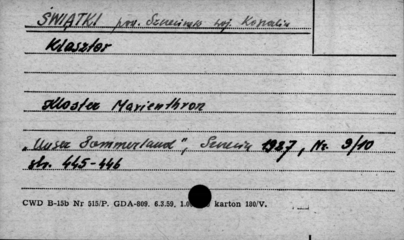 ŚWIĄTKI pow. Szczecinek woj. Koszalin
Klasztor
Kloster Marienthron
„Unser Pommerland", Szczecin 1927, Nr. 9/10
str. 445-446
CWD B-15b Nr 515/P. GDA-809. 6.3.59. karton 180/V.